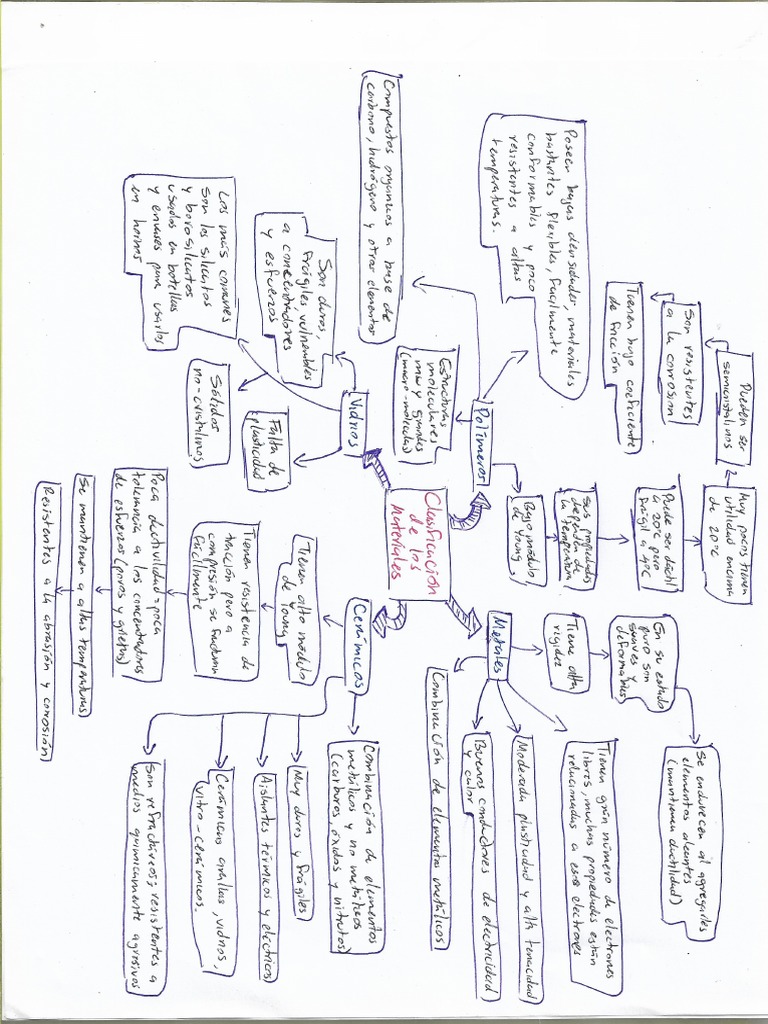 Clasificación
de los
Materiales
Polímeros
Poseen bajas densidades, materiales
bastantes flexibles, facilmente
conformables y poco
resistentes a altas
temperaturas.
Compuestos organicos a base de
carbono, hidrógeno y otros elementos
Estructuras
moleculares
muy grandes
(macro-moleculas)
Bajo módulo
de Young
Sus propiedades
dependen de
la temperatura
Puede ser ductil
a 20°C pero
frágil a 4°C
Muy pocos tienen
utilidad encima
de 20°C
Pueden ser
semicristalinos
Son resistentes
a la corrosion
Tienen bajo coeficiente
de fricción
Metales
Tiene alta
rigidez
En su estado
puro son
suaves y
deformables
Se endurecen al agregarles
elementos aleantes
(mantienen ductilidad)
Tienen grán número de electrones
libres, muchas propiedades están
relacionadas a esos electrones
Moderada plasticidad y alta tenacidad
Buenos conductores de electricidad
y calor
Combinación de elementos metálicos
Vidrios
Son duros,
frágiles, vulnerables
a concentradores
y esfuerzos
Los más comunes
Son los silicatos
y borosilicatos
usados en botellas
y envases para usarlos
en hornos
Sólidos
no-cristalinos
Falta de
plasticidad
Cerámicos
Tienen alto módulo
de Young
Tienen resistencia de
tracción pero a
compresión se
fácilmente
Poca ductivilidad + poca
tolerancia a los concentradores
de esfuerzos (poros y grietas)
Se mantienen a altas temperaturas
Resistentes a la abrasión y corrosión
Combinación de elementos
metálicos y no metálicos
(carburos, óxidos y nitrutos)
Muy duros y frágiles
Aislantes térmicos y electricos
Cerámicas arcillas, vidrios,
vitro-cerámicos.
Son refractareos; resistentes a
medios quimicamente agresivos